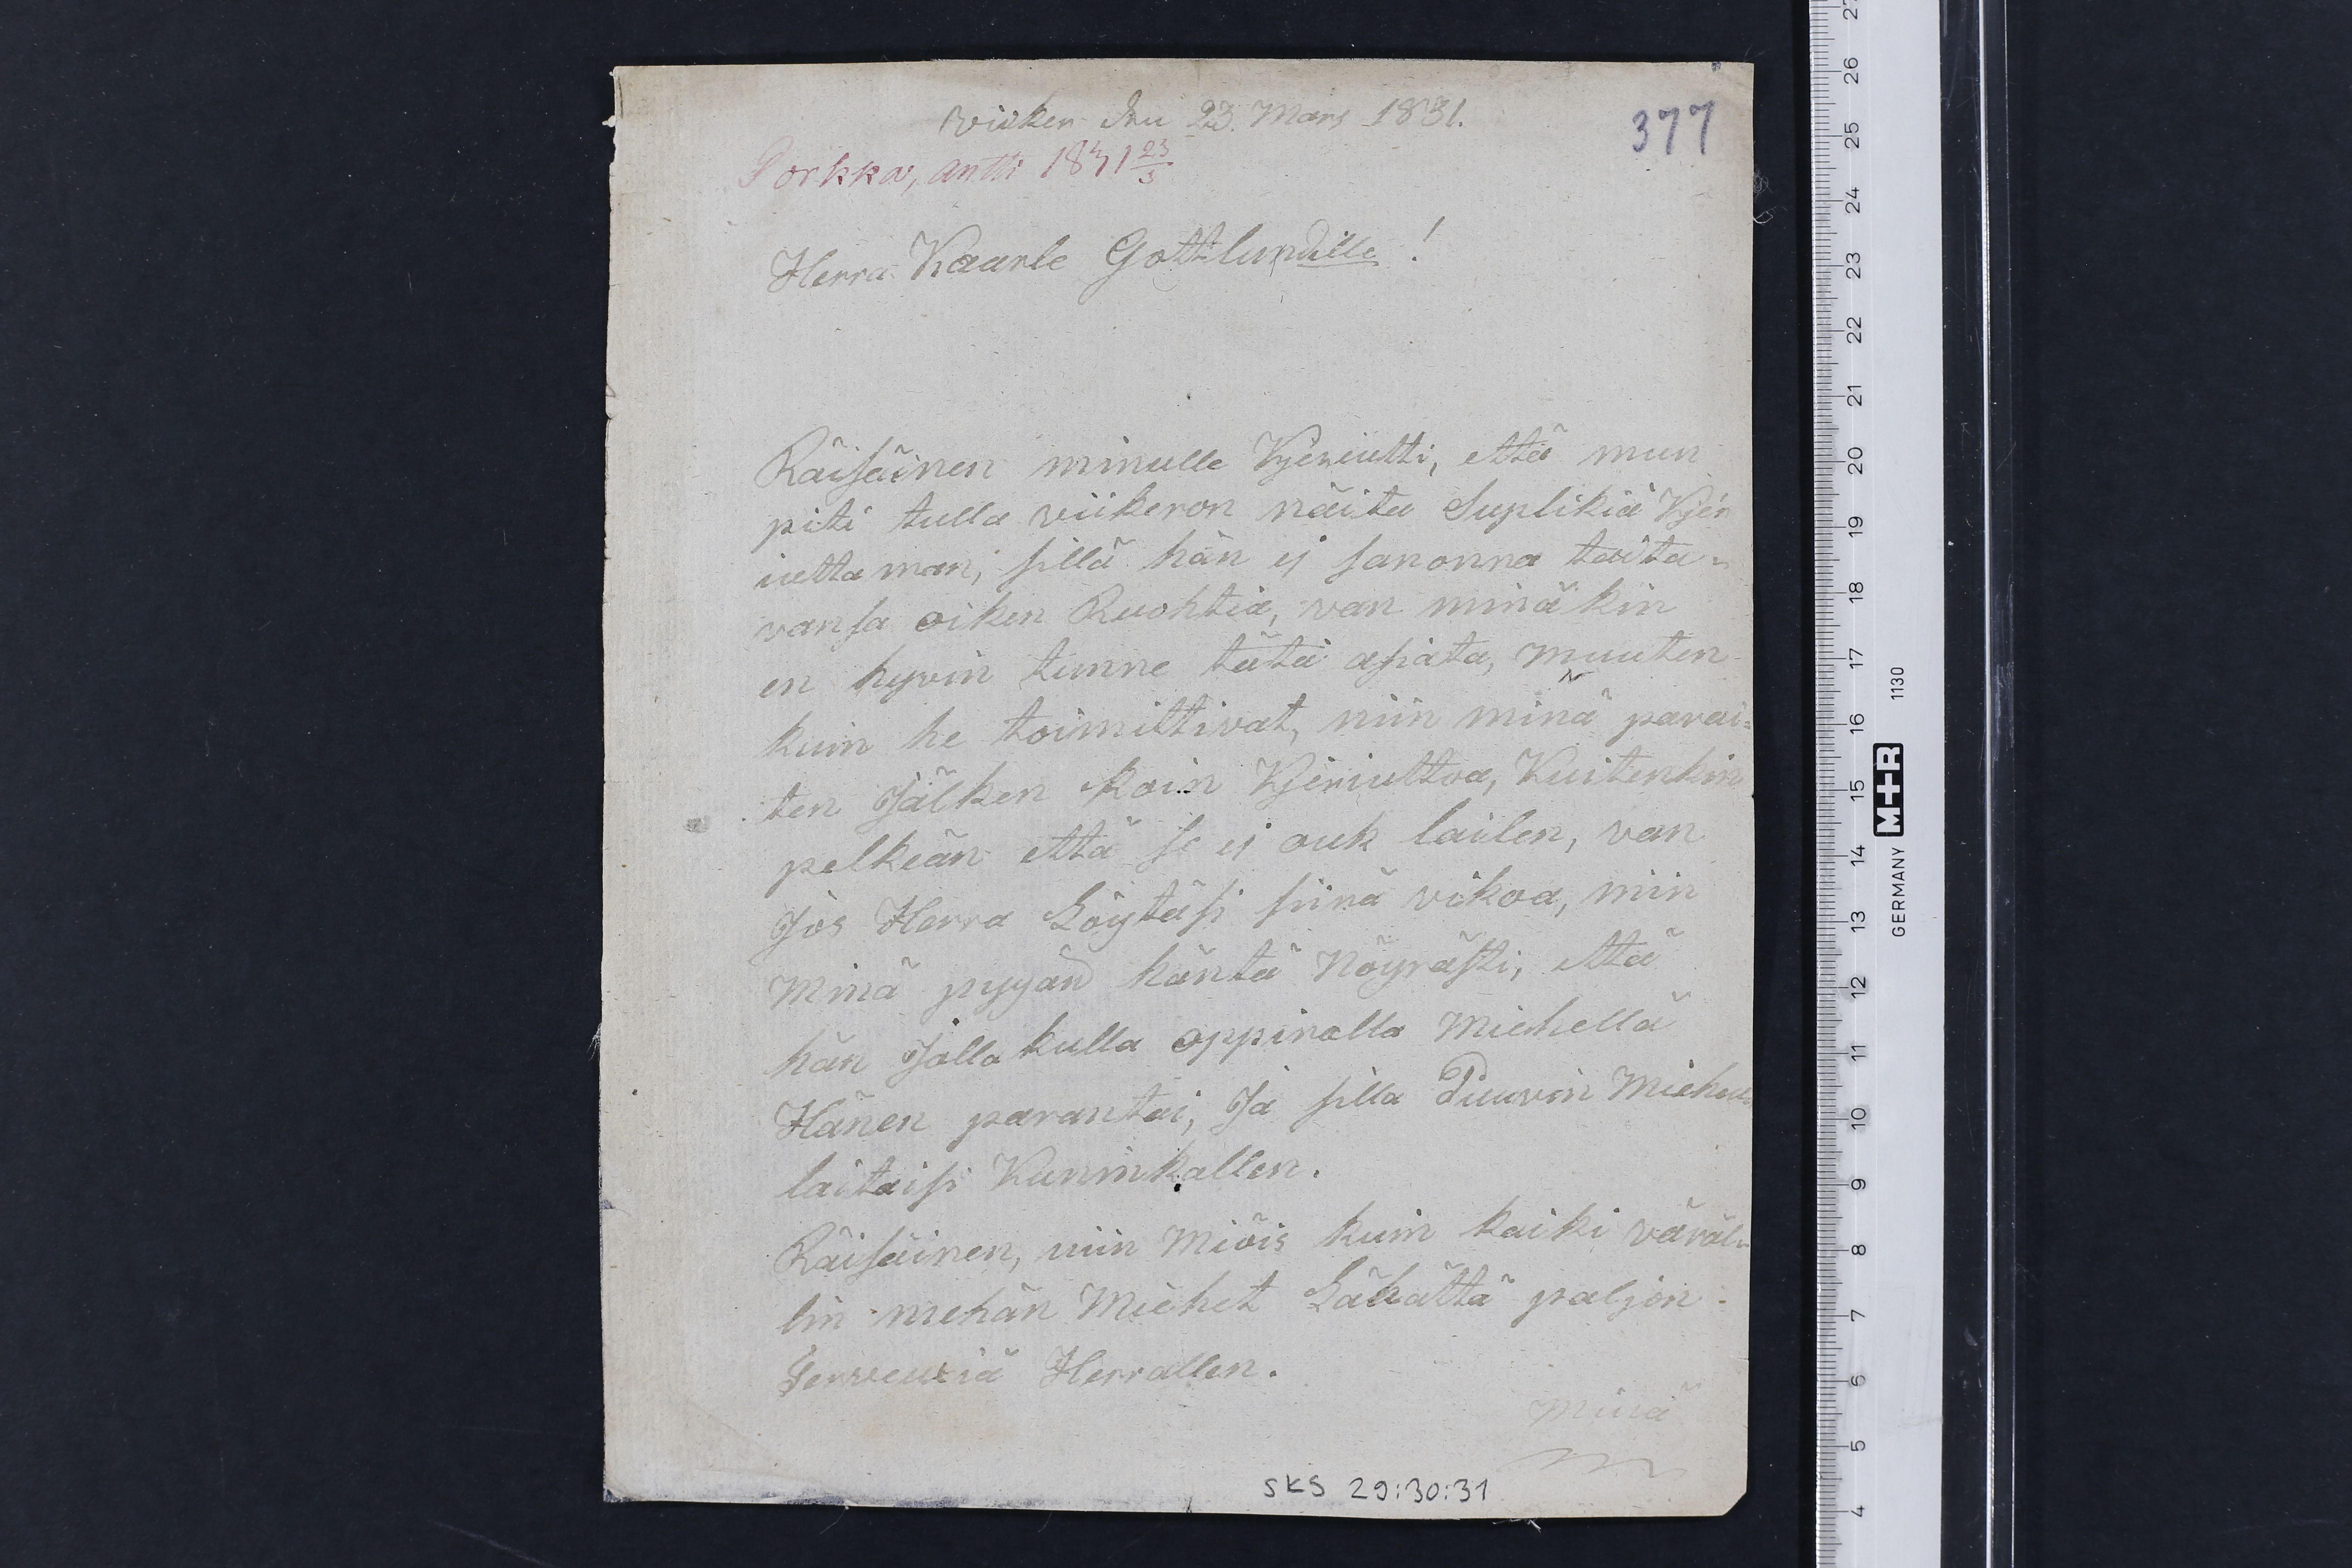 Wiiken den 23. Mars 1831.
377
Porkka, Antti 1831 23/3
Herra Kaarle Gottlundille!
Räisäinen minulle Kjeriutti, että mun
piti tulla viikeron näita Suplikiä Kjér
iuttaman, sillä hän ej sanonna taita-
vansa oiken Ruohtia, van minäkin
en hyvin tunne tätä asiata, muuten
kuin he toimittivat, niin minä parai-
ten Jälken koin Kjeriuttoa, Kuitenkin
pelkeän että se ej ouk lailen, van
Jos Herra Löytäsi siinä vikoa, niin
Minä pyyän häntä Nöyrästi, että
hän Jollakulla oppinolla Miehellä
Hänen parantai, Ja silla Tuuvin Miehen
laitaisi Kuninkallen.
Räisäinen, niin Miöis kuin kaiki väräl-
lin mehän Miehet Lähättä paljon
Terveuxiä Herrallen.
Minä
SKS 29:30:31
GERMANY M+R 1130
27
26
25
24
23
22
21
20
19
18
17
16
15
14
13
12
11
10
9
8
7
6
5
4